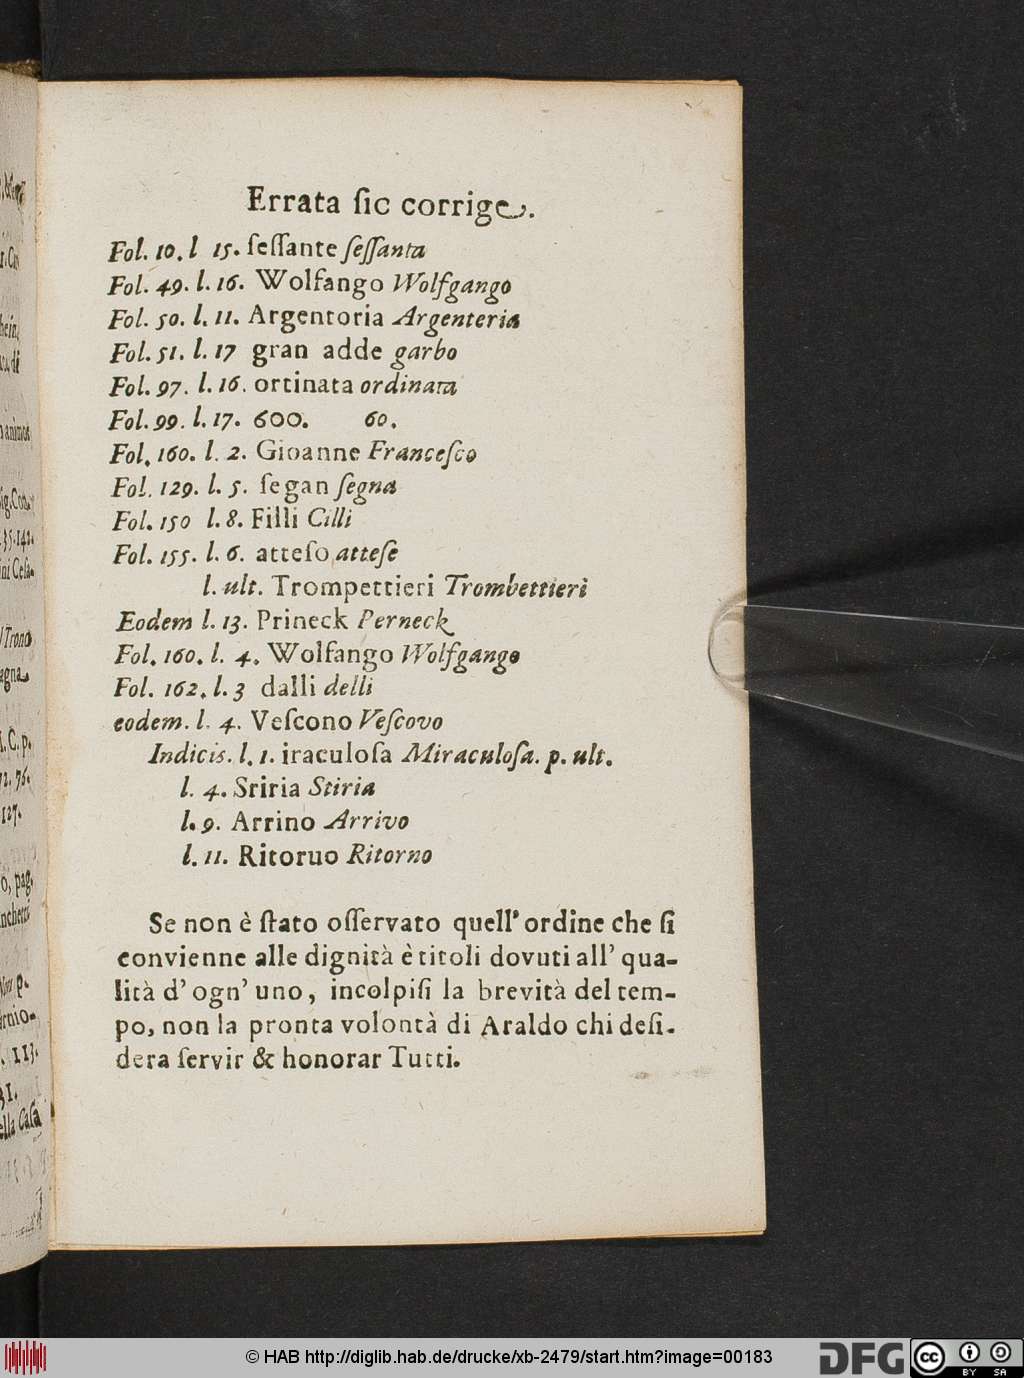 Errata ſic corrige.
Fol. 10. l 15. ſeſſante ſeſſanta
Fol. 49. l. 16. Wolfango Wolfgango
Fol. 50. l. 11. Argentoria Argenteria
Fol. 51. l. 17 gran adde garbo
Fol. 97. l. 16. ortinata ordinata
Fol. 99. l. 17. 600. 60.
Fol. 160. l. 2. Gioanne Franceſco
Fol. 129. l. 5. ſegan ſegna
Fol. 150 l. 8. Filli Cilli
Fol. 155. l. 6. atteſo atteſe
l. ult. Trompettieri Trombettieri
Eodem l. 13. Prineck Perneck
Fol. 160. l. 4. Wolfango Wolfgango
Fol. 162. l. 3 dalli delli
eodem. l. 4. Veſcono Veſcovo
Indicis. l. 1. iraculoſa Miraculoſa. p. ult.
l. 4. Sriria Stiria
l. 9. Arrino Arrivo
l. 11. Ritoruo Ritorno
Se non è ſtato oſſervato quell' ordine che ſi
convienne alle dignità è titoli dovuti all' qua-
lità d' ogn' uno, incolpiſi la brevità del tem-
po, non la pronta volontà di Araldo chi deſi-
dera ſervir & honorar Tutti.
© HAB http://diglib.hab.de/drucke/xb-2479/start.htm?image=00183
DFG
cc BY SA